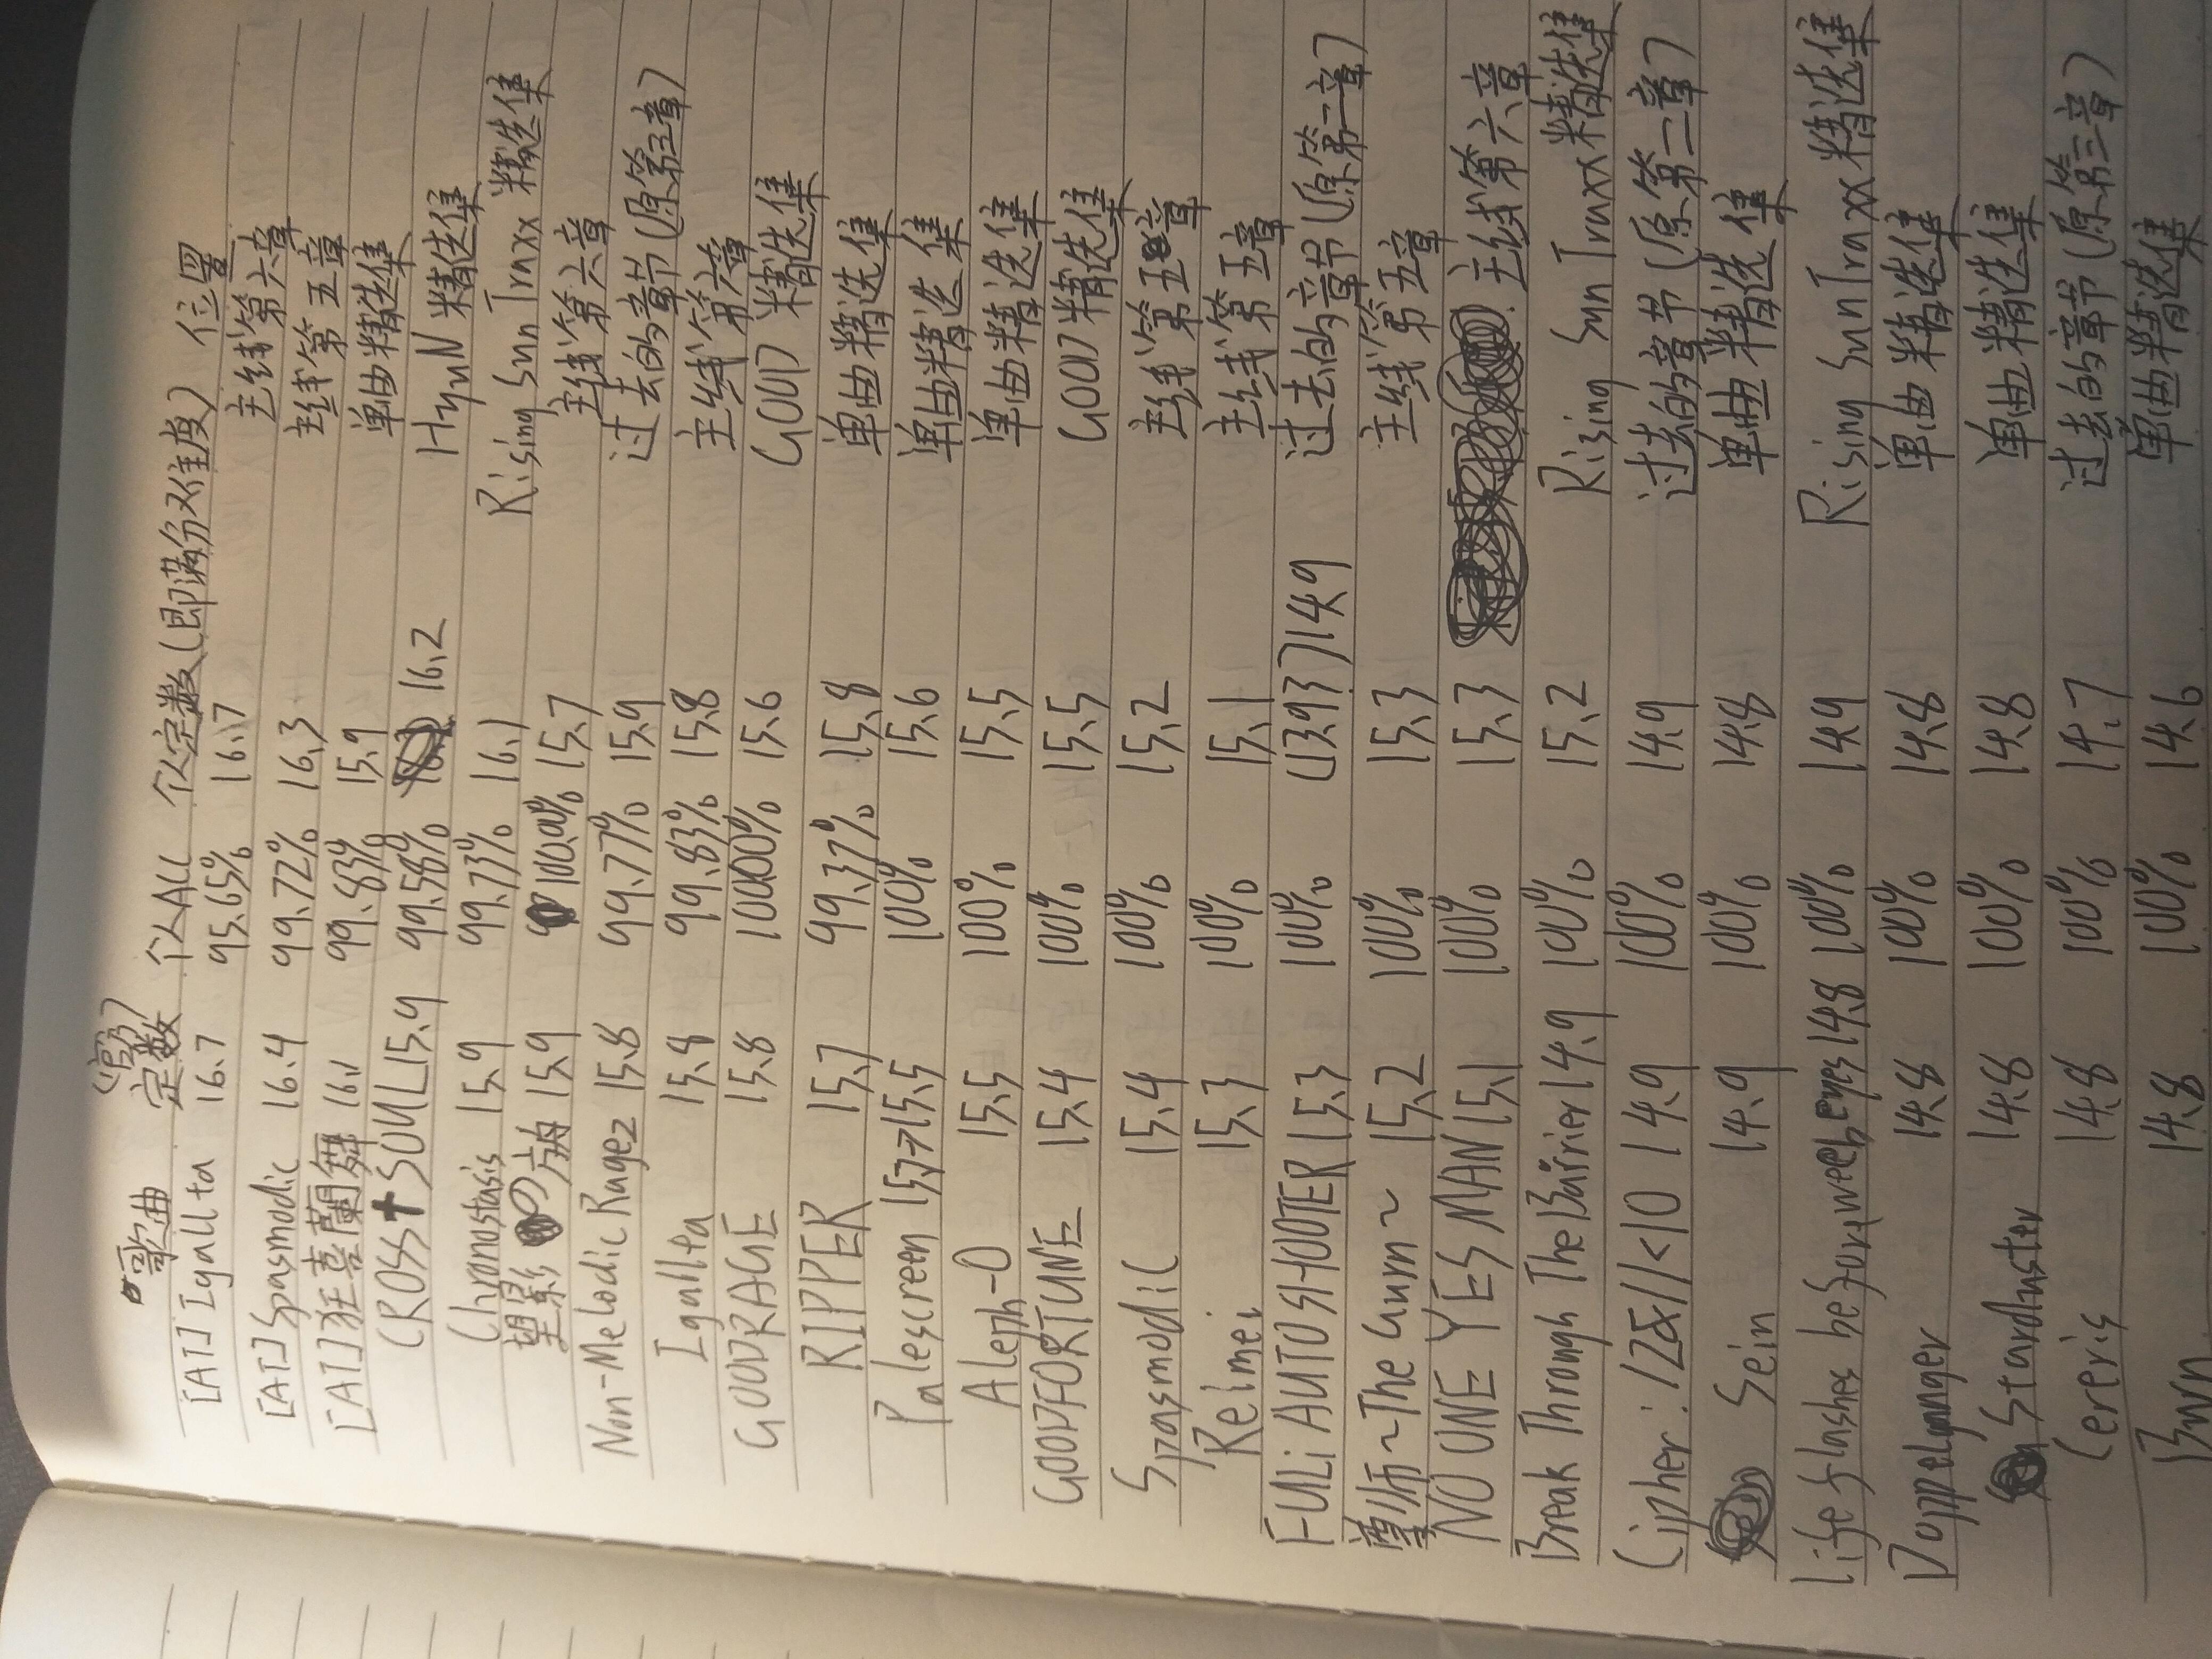 歌曲 (官方)定数 个人ACC 个人定数(即满分难度) 位置
[AT] Igallta 16.7 95.65% 16.7 主线第六章
[AT] Spasmodic 16.4 99.72% 16.3 主线第五章
[AT] 狂喜蘭舞 16.1 99.83% 15.9 单曲精选集
CROSS+SOUL 15.9 99.58% 16.2 HyuN精选集
Chronostasis 15.9 99.73% 16.1 Rising Sun Traxx 精选集
望影の方舟 15.9 100.00% 15.7 主线第六章
Non-Melodic Ragez 15.8 99.77% 15.9 过去的章节(原第三章)
Igallta 15.8 99.83% 15.8 主线第六章
GOODRAGE 15.8 100.00% 15.6 GOOD 精选集
RIPPER 15.7 99.37% 15.8 单曲精选集
Palescreen 15.7→15.5 100% 15.6 单曲精选集
Aleph-0 15.5 100% 15.5 单曲精选集
GOODFORTUNE 15.4 100% 15.5 GOOD精选集
Spasmodic 15.4 100% 15.2 主线第五章
Relmei 15.3 100% 15.1 主线第五章
FULi AUTO SHOOTER 15.3 100% (13.9?) 14.9 过去的章节(原第一章)
尊师~The Guru~ 15.2 100% 15.3 主线第五章
NO ONE YES MAN 15.1 100% 15.3 主线第六章
Break Through The Barrier 14.9 100% 15.2 Rising Sun Traxx精选集
Cipher: /2&//<|0 14.9 100% 14.9 过去的章节(原第二章)
Sein 14.9 100% 14.8 单曲精选集
Life flashes before weeb eyes 14.8 100% 14.9 Rising Sun Traxx精选集
Doppelganger 14.8 100% 14.8 单曲精选集
Stardust:er 14.8 100% 14.8 单曲精选集
Cereris 14.8 100% 14.7 过去的章节(原第三章)
Burn 14.8 100% 14.6 单曲精选集